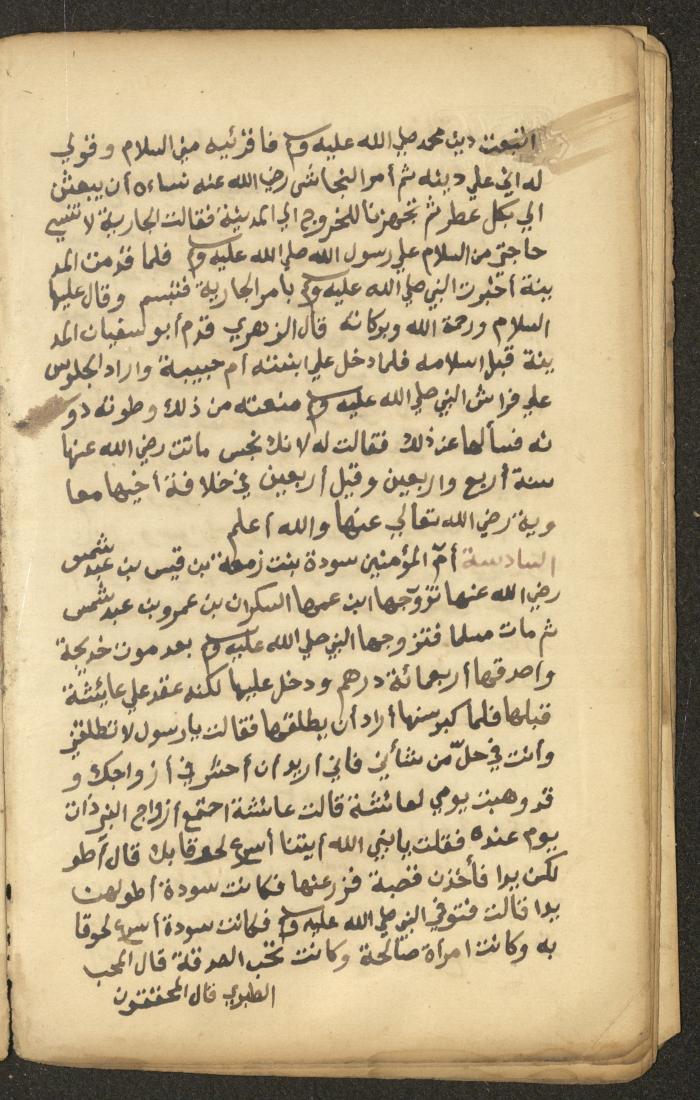 اتبعت دين محمد صلي الله عليه وم فاقرئيه مني السلام وقولي
له اني علي دينه ثم أمر النجاشي رضي الله عنه نساءه أن يبعثن
الي بكل عطر ثم تجهزنا للخروج الي المدينة فقالت الجارية لا تنسي
حاجتي من السلام علي رسول الله صلي الله عليه وم فلما قدمت المد
ينة أخبرت النبي صلي الله عليه وم بامر الجارية فتبسم وقال عليها
السلام ورحمة الله وبركاته قال الزهري قدم أبو سفيان المد
ينة قبل اسلامه فلما دخل علي ابنته أم حبيبة واراد الجلوس
علي فراش النبي صلي الله عليه وم منعته من ذلك وطوته دو
نه فسألها عن ذلك فقالت له لانك نجس ماتت رضي الله عنها
سنة أربع واربعين وقيل أربعين في خلافة أخيها معا
وية رضي الله تعالي عنها والله أعلم
السادسة أم المؤمنين سودة بنت زمعة بن قيس بن عبد شمس
رضي الله عنها تزوّجها ابن عمها السكران بن عمرو بن عبد شمس
ثم مات مسلما فتزوجها النبي صلي الله عليه وم بعد موت خديجة
وأصدقها أربعمائة درهم ودخل عليها لكنه عقد علي عايئشة
قبلها فلما كبر سنها أراد أن يطلقها فقالت يا رسول لا تطلقني
وأنت في حلّ من شأني فاني أريد ان أحشر في أزواجك و
قد وهبت يومي لعائشة قالت عائشة اجتمع أزواج النبي ذات
يوم عنده فقلت يا نبي الله أيتنا أسرع لحوقا بك قال أطو
لكن يدا فأخذن قصبة فزرعنها فكانت سودة أطولهن
يدا قالت فتوفي النبي صلي الله عليه وم فكانت سودة أسرع لحوقا
به وكانت امرأة صالحة وكانت تحب الصدقة قال المحب
الطبري قال المحققون